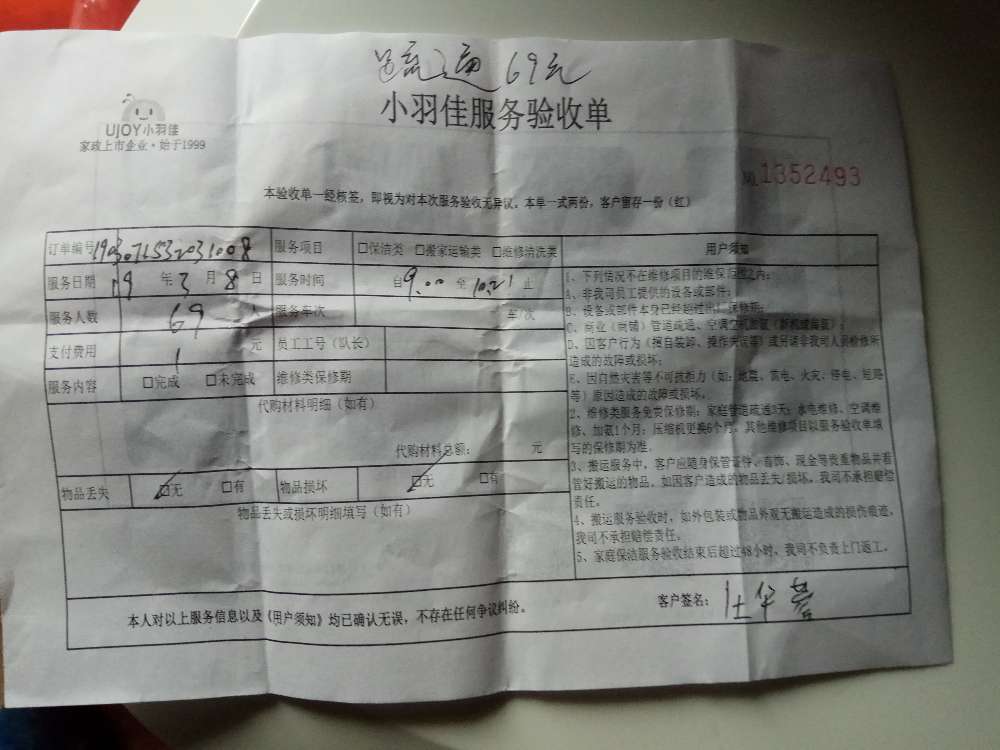 疏通 69元
小羽佳服务验收单
UJOY小羽佳
家政上市企业·始于1999
№1352493
本验收单一经核签，即视为对本次服务验收无异议。本单一式两份，客户留存一份（红）
订单编号 服务项目 □保洁类 □搬家运输类 □维修清洗类 用户须知
服务日期 19 年 3 月 8 日 服务时间 自 9:00 至 10:21 止
服务人数 69 人 服务车次 车/次
支付费用 1 元 员工工号（队长）
服务内容 □完成 □未完成 维修类保修期
代购材料明细（如有）
代购材料总额： 元
物品丢失 □无 □有 物品损坏 □无 □有
物品丢失或损坏明细填写（如有）
1、下列情况不在维修项目的维保范围之内：
A、非我司员工提供的设备或部件；
B、设备或部件本身已经超过出厂保修期；
C、商业（商铺）管道疏通、空调
D、因客户行为（擅自装卸、操作失误等）或另请非我司人员检修所
造成的故障或损坏；
E、因自然灾害等不可抗拒力（如：地震、雷电、火灾、停电、短路
等）原因造成的故障或损坏。
2、维修类服务免费保修期：家庭管道疏通3天；水电维修、空调维
修、加氨1个月；压缩机更换6个月。其他维修项目以服务验收单填
写的保修期为准。
3、搬运服务中，客户应随身保管证件、首饰、现金等贵重物品并看
管好搬运的物品。如因客户造成的物品丢失/损坏，我司不承担赔偿
责任。
4、搬运服务验收时，如外包装或物品外观无搬运造成的损伤痕迹，
我司不承担赔偿责任。
5、家庭保洁服务验收结束后超过48小时，我司不负责上门返工。
本人对以上服务信息以及《用户须知》均已确认无误，不存在任何争议纠纷。
客户签名：